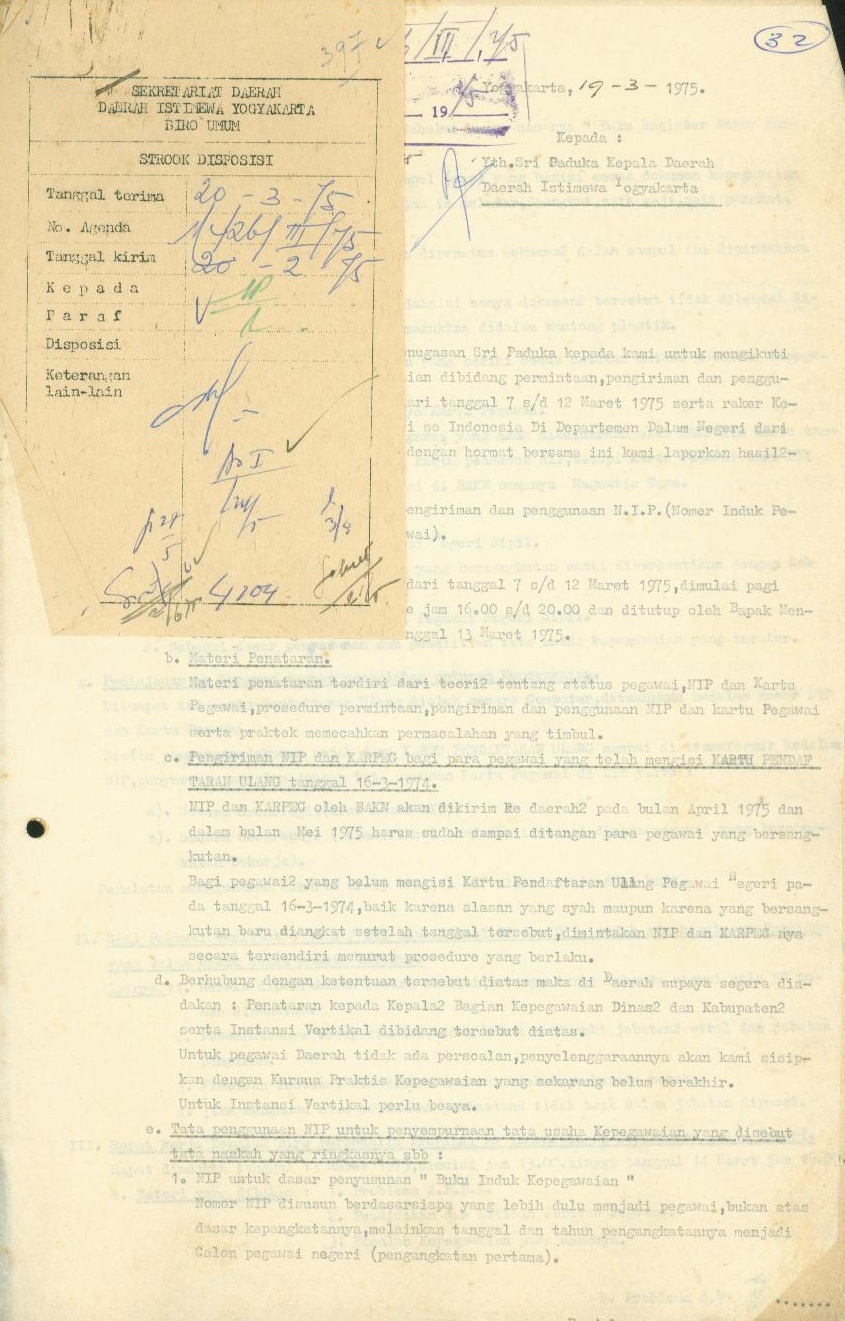 32
397
III, 75
19 75
Yogyakarta, 19 - 3 - 1975.
Kepada :
Yth.Sri Paduka Kepala Daerah
Daerah Istimewa Yogyakarta
SEKRETARIAT DAERAH
DAERAH ISTIMEWA YOGYAKARTA
BIRO UMUM
STROOK DISPOSISI
Tanggal terima 20 - 3 - 75
No. Agenda /26/III/75
Tanggal kirim 20 - 2 75
K e p a d a
P a r a f
Disposisi
Keterangan
lain-lain
4204
nugasan Sri Paduka kepada kami untuk mengikuti
ian dibidang permintaan,pengiriman dan penggu-
ari tanggal 7 s/d 12 Maret 1975 serta raker Ke-
i se Indonesia Di Departemen Dalam Negeri dari
dengan hormat bersama ini kami laporkan hasil2-
engiriman dan penggunaan N.I.P.(Nomer Induk Pe-
wai).
dari tanggal 7 s/d 12 Maret 1975,dimulai pagi
e jam 16.00 s/d 20.00 dan ditutup oleh Bapak Men-
nggal 13 Maret 1975.
b. Materi Penataran.
Materi penataran terdiri dari teori2 tentang status pegawai,NIP dan Kartu
Pegawai,prosedure permintaan,pengiriman dan penggunaan NIP dan kartu Pegawai
serta praktek memecahkan permasalahan yang timbul.
c. Pengiriman NIP dan KARPEG bagi para pegawai yang telah mengisi KARTU PENDAF
TARAN ULANG tanggal 16-3-1974.
NIP dan KARPEG oleh BAKN akan dikirim ke daerah2 pada bulan April 1975 dan
dalam bulan Mei 1975 harus sudah sampai ditangan para pegawai yang bersang-
kutan.
Bagi pegawai2 yang belum mengisi Kartu Pendaftaran Ulang Pegawai Negeri pa-
da tanggal 16-3-1974,baik karena alasan yang syah maupun karena yang bersang-
kutan baru diangkat setelah tanggal tersebut,dimintakan NIP dan KARPEG nya
secara tersendiri menurut prosedure yang berlaku.
d. Berhubung dengan ketentuan tersebut diatas maka di Daerah supaya segera dia-
dakan : Penataran kepada Kepala2 Bagian Kepegawaian Dinas2 dan Kabupaten2
serta Instansi Vertikal dibidang tersebut diatas.
Untuk pegawai Daerah tidak ada persoalan,penyelenggaraannya akan kami sisip-
kan dengan Kursus Praktis Kepegawaian yang sekarang belum berakhir.
Untuk Instansi Vertikal perlu beaya.
e. Tata penggunaan NIP untuk penyempurnaan tata usaha Kepegawaian yang disebut
tata naskah yang ringkasnya sbb :
1. NIP untuk dasar penyusunan " Buku Induk Kepegawaian "
Nomer NIP disusun berdasarsiapa yang lebih dulu menjadi pegawai,bukan atas
dasar kepangkatannya,melainkan tanggal dan tahun pengangkatannya menjadi
Calon pegawai negeri (pengangkatan pertama).